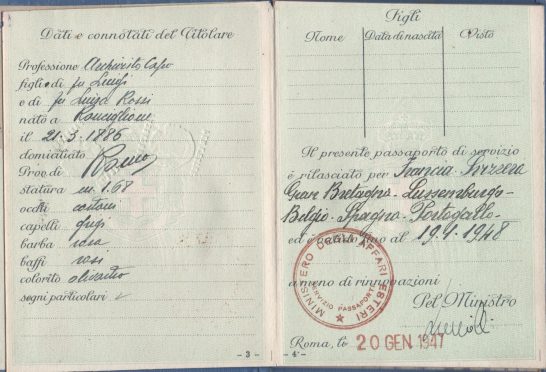 Dati e connotati del Titolare
Professione Archivista Capo
figlio di fu Luigi
e di fu Luisa Rossi
nato a Ronciglione
il 21-3-1886
domiciliato Roma
Prov. di
statura m. 1.68
occhi castani
capelli grigi
barba rasa
baffi rasi
colorito olivastro
segni particolari
- 3 -
Figli
Nome Data di nascita Visto
Il presente passaporto di servizio
è rilasciato per Francia - Svizzera
Gran Bretagna - Lussemburgo -
Belgio - Spagna - Portogallo -
ed è valido fino al 19.1.1948
a meno di rinnovazioni
Pel Ministro
MINISTERO DEGLI AFFARI ESTERI
SERVIZIO PASSAPORTI
Roma, lì 20 GEN. 1947
- 4 -